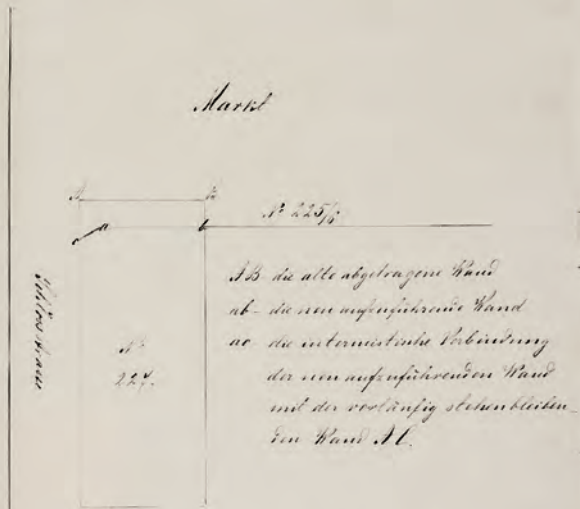 Markt
A B
No 225/6
a b
c
AB die alte abgetragene Wand
ab - die neu aufzuführende Wand
ac die interimistische Verbindung
der neu aufzuführenden Wand
mit der vorläufig stehenbleiben-
den Wand AC.
Schlossstrasse
No
227.